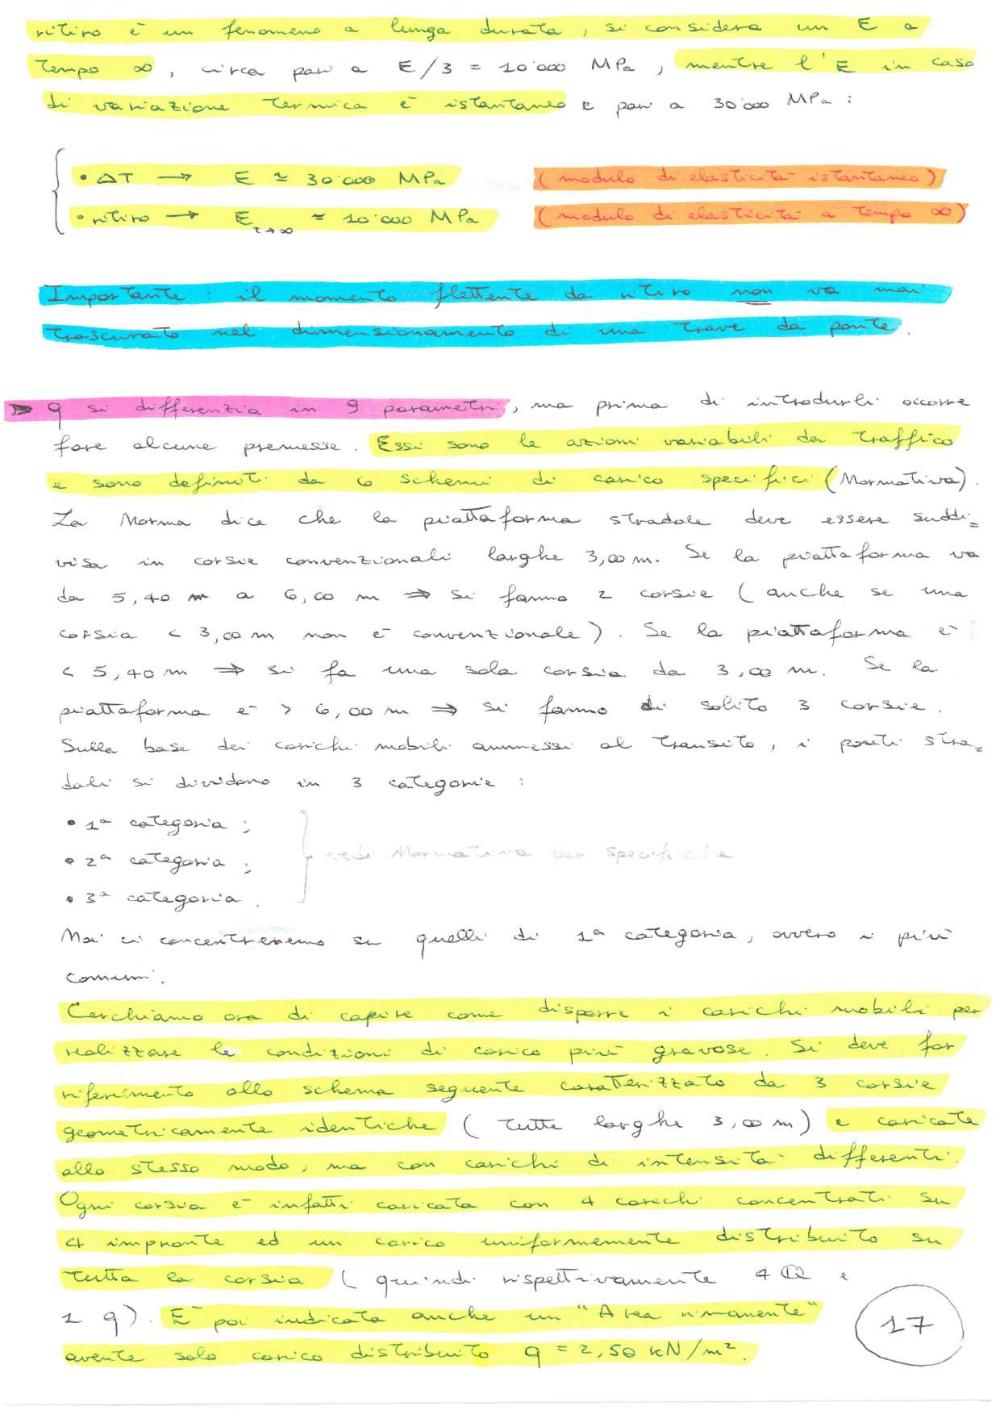 ritiro è un fenomeno a lunga durata, si considera un E a
tempo ∞, circa pari a E/3 = 10'000 MPa, mentre l'E in caso
di variazione termica è istantaneo e pari a 30'000 MPa:
• ΔT → E ≃ 30'000 MPa (modulo di elasticità istantaneo)
• ritiro → E t→∞ ≃ 10'000 MPa (modulo di elasticità a tempo ∞)
Importante: il momento flettente da ritiro non va mai
trascurato nel dimensionamento di una trave da ponte.
▷ q si differenzia in 9 parametri, ma prima di introdurli occorre
fare alcune premesse. Essi sono le azioni variabili da traffico
e sono definiti da 6 schemi di carico specifici (Normativa).
La Norma dice che la piattaforma stradale deve essere suddi=
visa in corsie convenzionali larghe 3,00 m. Se la piattaforma va
da 5,40 m a 6,00 m ⇒ si fanno 2 corsie (anche se una
corsia < 3,00 m non è convenzionale). Se la piattaforma è
< 5,40 m ⇒ si fa una sola corsia da 3,00 m. Se la
piattaforma è > 6,00 m ⇒ si fanno di solito 3 corsie.
Sulla base dei carichi mobili ammessi al transito, i ponti stra=
dali si dividono in 3 categorie:
• 1ª categoria;
• 2ª categoria; vedi Normativa per specifiche
• 3ª categoria.
Noi ci concentreremo su quelli di 1ª categoria, ovvero i più
comuni.
Cerchiamo ora di capire come disporre i carichi mobili per
realizzare le condizioni di carico più gravose. Si deve far
riferimento allo schema seguente caratterizzato da 3 corsie
geometricamente identiche (tutte larghe 3,00 m) e caricate
allo stesso modo, ma con carichi di intensità differenti.
Ogni corsia è infatti caricata con 4 carichi concentrati su
4 impronte ed un carico uniformemente distribuito su
tutta la corsia (quindi rispettivamente 4 Q e
1 q). È poi indicata anche un "Area rimanente"
avente solo carico distribuito q = 2,50 kN/m².
17